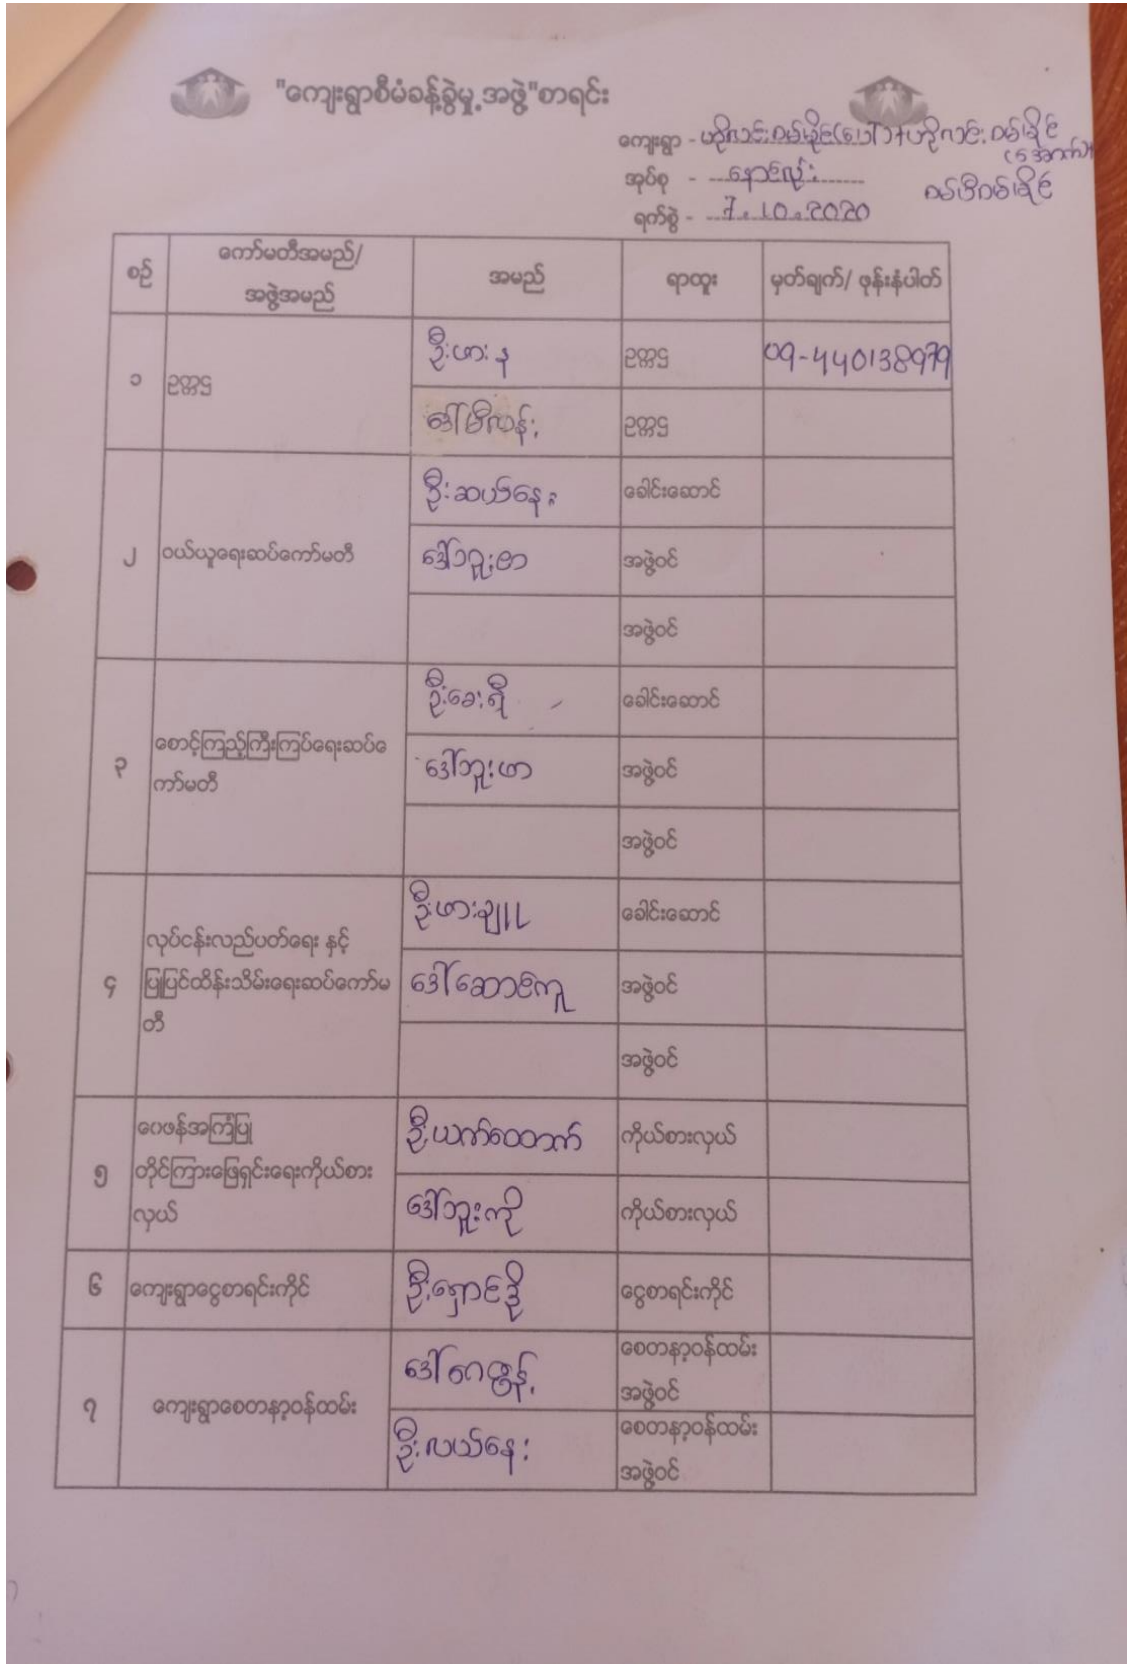 "ကျေးရွာစီမံခန့်ခွဲမှု့အဖွဲ့"စာရင်း
ကျေးရွာ -
အုပ်စု - နောင်လုံး
ရက်စွဲ - 7.10.2020
စဉ် ကော်မတီအမည်/ အဖွဲ့အမည် အမည် ရာထူး မှတ်ချက်/ ဖုန်းနံပါတ်
၁ ဥက္ကဌ ဦးဖားန ဥက္ကဌ 09-440138979
ဒေါ်မီလန်း ဥက္ကဌ
၂ ဝယ်ယူရေးဆပ်ကော်မတီ ဦးဆယ်နေး ခေါင်းဆောင်
ဒေါ်ဘူးစာ အဖွဲ့ဝင်
အဖွဲ့ဝင်
၃ စောင့်ကြည့်ကြီးကြပ်ရေးဆပ်ကော်မတီ ဦးခေးရီ ခေါင်းဆောင်
ဒေါ်ဘူးဖာ အဖွဲ့ဝင်
အဖွဲ့ဝင်
၄ လုပ်ငန်းလည်ပတ်ရေး နှင့်
ပြုပြင်ထိန်းသိမ်းရေးဆပ်ကော်မတီ ဦးဖား ခေါင်းဆောင်
ဒေါ်ဆောင်ကူ အဖွဲ့ဝင်
အဖွဲ့ဝင်
၅ ဝေဖန်အကြံပြု
တိုင်ကြားဖြေရှင်းရေးကိုယ်စားလှယ် ဦးယက်ထောက် ကိုယ်စားလှယ်
ဒေါ်ဘူးကို ကိုယ်စားလှယ်
၆ ကျေးရွာငွေစာရင်းကိုင် ဦးရှောင်ဒို ငွေစာရင်းကိုင်
၇ ကျေးရွာစေတနာ့ဝန်ထမ်း ဒေါ် စေတနာ့ဝန်ထမ်း
အဖွဲ့ဝင်
ဦးလယ်နေး စေတနာ့ဝန်ထမ်း
အဖွဲ့ဝင်